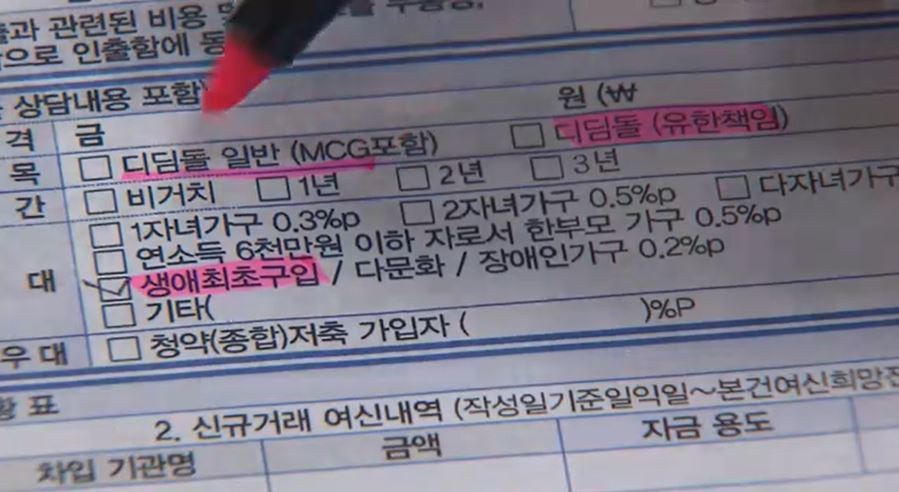 과 관련된 비용
으로 인출함에 동
상담내용 포함)
격 금 원 (₩
목 □ 디딤돌 일반 (MCG포함) □ 디딤돌 (유한책임)
간 □ 비거치 □ 1년 □ 2년 □ 3년
□ 1자녀가구 0.3%p □ 2자녀가구 0.5%p □ 다자녀가구
□ 연소득 6천만원 이하 자로서 한부모 가구 0.5%p
대 ☑ 생애최초구입 / 다문화 / 장애인가구 0.2%p
□ 기타( )%P
우대 □ 청약(종합)저축 가입자 (
황 표
2. 신규거래 여신내역 (작성일기준일익일~본건여신희망
차입 기관명 금액 자금 용도